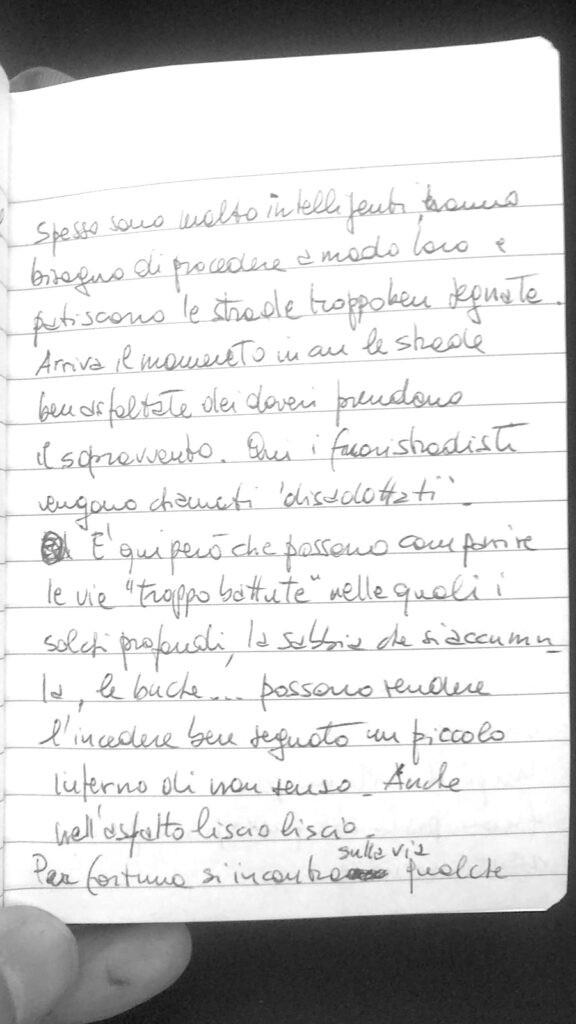 Spesso sono molto intelligenti, hanno
bisogno di procedere a modo loro e
patiscono le strade troppo ben segnate.
Arriva il momento in cui le strade
ben asfaltate dei doveri prendono
il sopravvento. Qui i fuoristradisti
vengono chiamati "disadattati".
E' qui però che possono comparire
le vie "troppo battute" nelle quali i
solchi profondi, la sabbia che si accumu
la, le buche... possono rendere
l'incedere ben segnato un piccolo
inferno di non senso. Anche
nell'asfalto liscio liscio.
sulla via
Per fortuna si incontra qualche